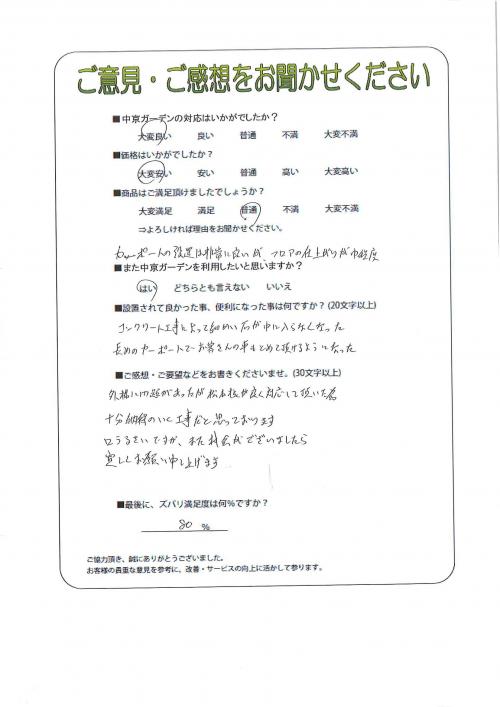 ご意見・ご感想をお聞かせください
■中京ガーデンの対応はいかがでしたか？
大変良い 良い 普通 不満 大変不満
■価格はいかがでしたか？
大変安い 安い 普通 高い 大変高い
■商品はご満足頂けましたでしょうか？
大変満足 満足 普通 不満 大変不満
⇒よろしければ理由をお聞かせください。
カーポートの設置は非常に良いが、フロアの仕上がりが中程度
■また中京ガーデンを利用したいと思いますか？
はい どちらとも言えない いいえ
■設置されて良かった事、便利になった事は何ですか？(20文字以上)
コンクリート工事によって細めい石が中に入らなくなった
長めのカーポートでお客さんの車もとめて頂けるようになった
■ご感想・ご要望などをお書きくださいませ。(30文字以上)
外構に問題があったが 様が良く対応して頂いた為
十分納得のいく工事だと思っております
口うるさいですが、また機会がございましたら
宜しくお願い申し上げます
■最後に、ズバリ満足度は何％ですか？
80 ％
ご協力頂き、誠にありがとうございました。
お客様の貴重な意見を参考に、改善・サービスの向上に活かして参ります。